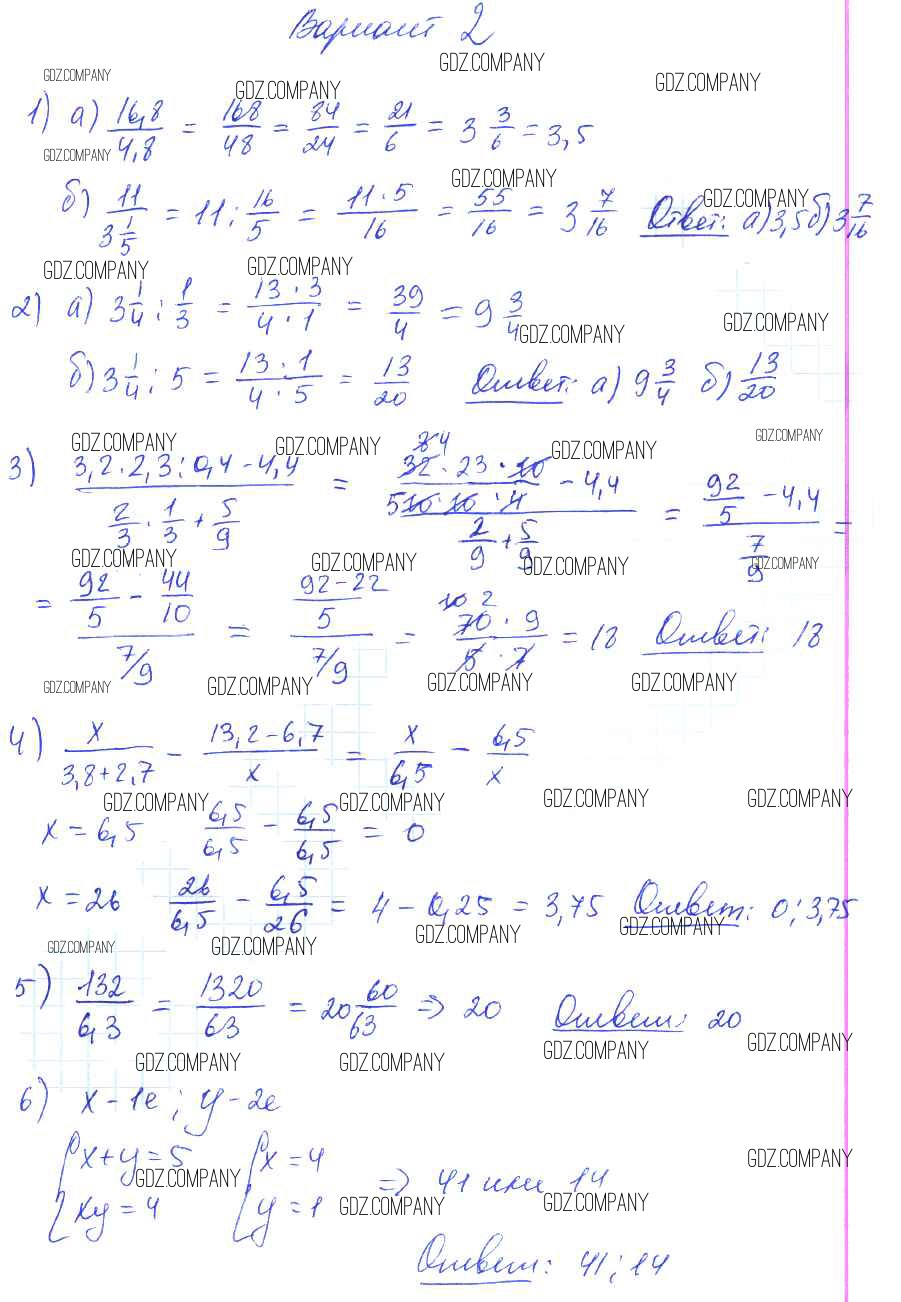 Вариант 2
GDZ.COMPANY GDZ.COMPANY GDZ.COMPANY GDZ.COMPANY
1) а) 16,8/4,8 = 168/48 = 84/24 = 21/6 = 3 3/6 = 3,5
GDZ.COMPANY GDZ.COMPANY GDZ.COMPANY
б) 11/(3 1/5) = 11 : 16/5 = 11·5/16 = 55/16 = 3 7/16 Ответ: а) 3,5 б) 3 7/16
GDZ.COMPANY GDZ.COMPANY
2) а) 3 1/4 : 1/3 = 13·3/4·1 = 39/4 = 9 3/4
GDZ.COMPANY GDZ.COMPANY
б) 3 1/4 : 5 = 13·1/4·5 = 13/20 Ответ: а) 9 3/4 б) 13/20
GDZ.COMPANY GDZ.COMPANY GDZ.COMPANY GDZ.COMPANY
3) (3,2·2,3:0,4 - 4,4)/(2/3 · 1/3 + 5/9) = (8 4 32·23·10/5 10·10·4 - 4,4)/(2/9 + 5/9) = (92/5 - 4,4)/(7/9) =
GDZ.COMPANY GDZ.COMPANY GDZ.COMPANY GDZ.COMPANY
= (92/5 - 44/10)/(7/9) = ((92-22)/5)/(7/9) = 10 2 70·9/5·7 = 18 Ответ: 18
GDZ.COMPANY GDZ.COMPANY GDZ.COMPANY GDZ.COMPANY
4) x/(3,8+2,7) - (13,2-6,7)/x = x/6,5 - 6,5/x
GDZ.COMPANY GDZ.COMPANY GDZ.COMPANY GDZ.COMPANY
x = 6,5 6,5/6,5 - 6,5/6,5 = 0
x = 26 26/6,5 - 6,5/26 = 4 - 0,25 = 3,75 Ответ: 0; 3,75
GDZ.COMPANY GDZ.COMPANY GDZ.COMPANY GDZ.COMPANY
5) 132/6,3 = 1320/63 = 20 60/63 ⇒ 20 Ответ: 20
GDZ.COMPANY GDZ.COMPANY GDZ.COMPANY GDZ.COMPANY
6) x - 1е; y - 2е
{x+y=5 {x=4
GDZ.COMPANY GDZ.COMPANY
⇒ 41 или 14
{xy=4 {y=1
GDZ.COMPANY GDZ.COMPANY
Ответ: 41; 14